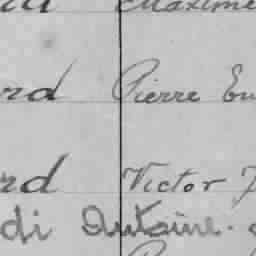 Maxime
rd Pierre Eu
rd Victor
di Antoine.